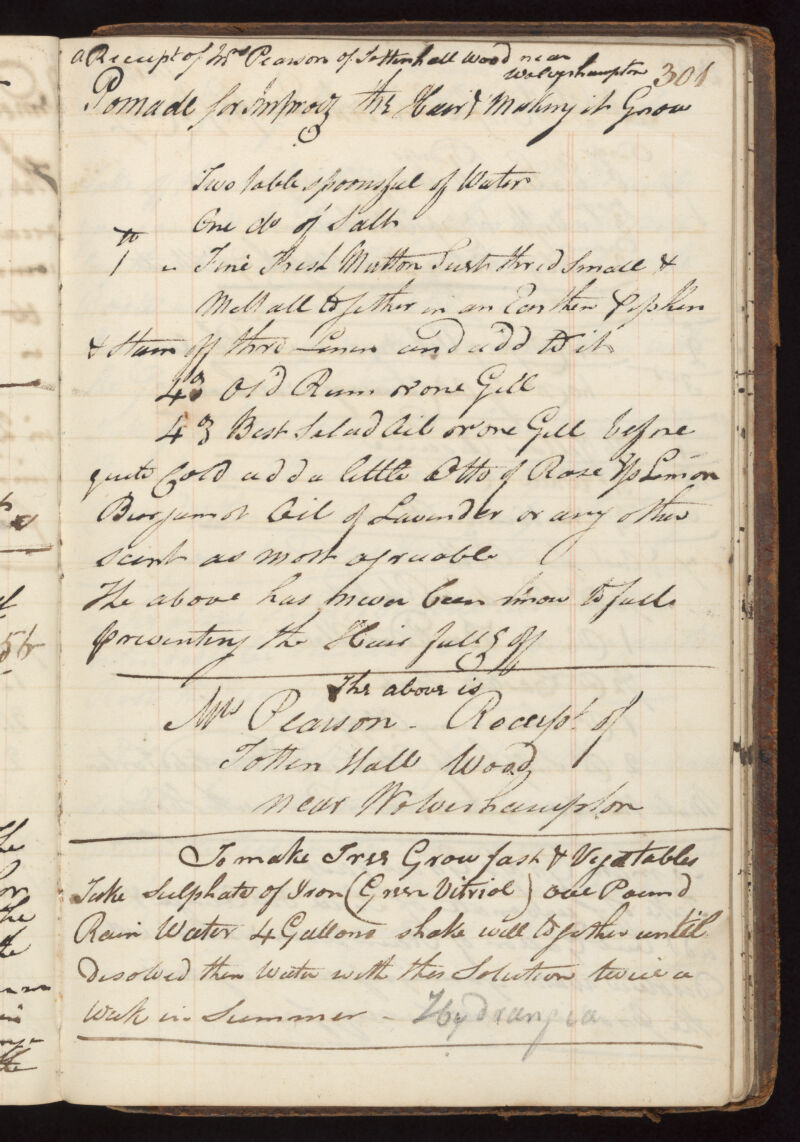 a Receipt of Mrs Pearson of Tottenhall Wood near
Wolverhampton 301
Pomade for Improvg the Hair & Making it Grow
Two table spoonsful of Water
One do of Salt
1 lb - Fine Fresh Mutton Suet shred small &
Melt all together in an Earthen Pipkin
& Strain off thro Linen and add to it
4 ℥ Old Rum or one Gill
4 ℥ Best Salad Oil or one Gill before
quite Cold add a little Otto of Rose Ess Lemon
Bergamot Oil of Lavender or any other
scent as most agreeable
The above has never been know to fail
preventing the Hair fallg off
The above is
Mrs Pearson - Receipt of
Totten Hall Wood
near Wolverhampton
To make Trees Grow fast & Vegatables
Take Sulphate of Iron (Green Vitriol) one Pound
Rain Water 4 Gallons shake well together until
disolved then Water with this Solution twice a
Week in Summer - Hydrangia